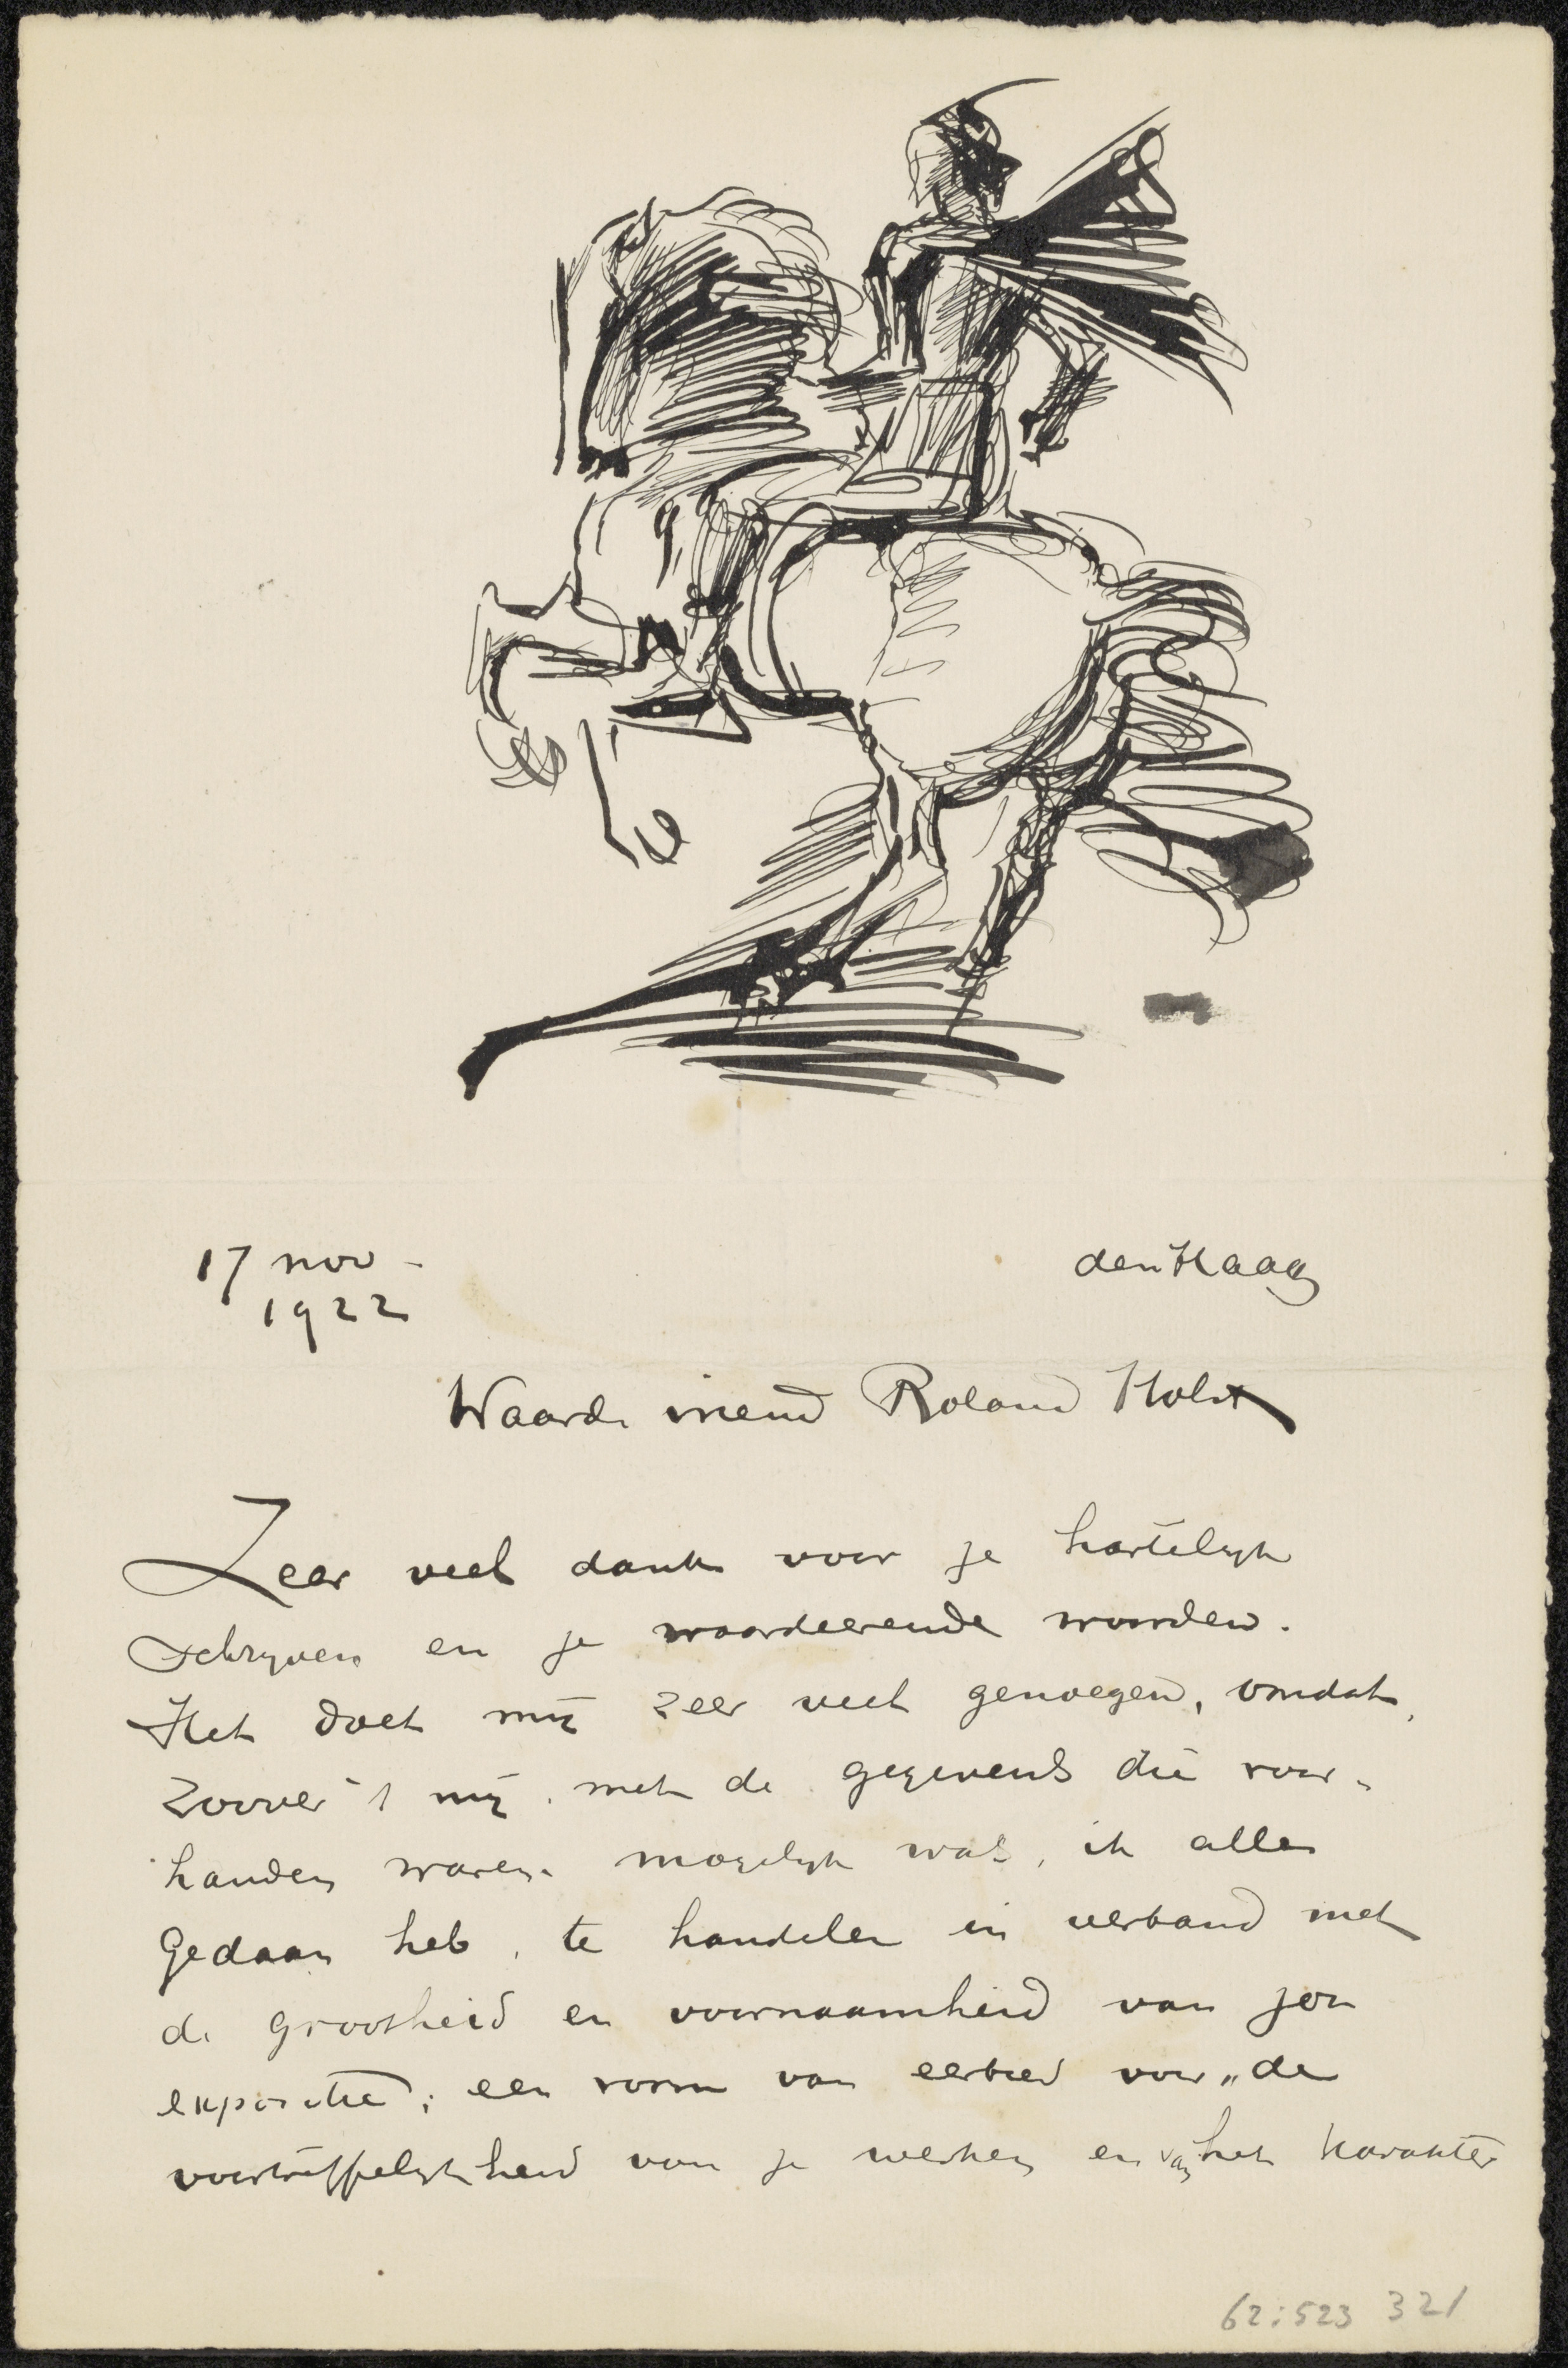 17 nov -
1922
den Haag
Waarde vriend Roland Holst
Zeer veel dank voor je hartelijk
schrijven en je waardeerende woorden.
Het doet mij zeer veel genoegen, omdat,
zoover 't mij, met de gegevens die voor-
handen waren mogelijk was, ik alles
gedaan heb, te handelen in verband met
de grootheid en voornaamheid van jou
expositie; een vorm van eerbied voor "de
voortreffelijkheid van je werken en van het karakter
62:523 321